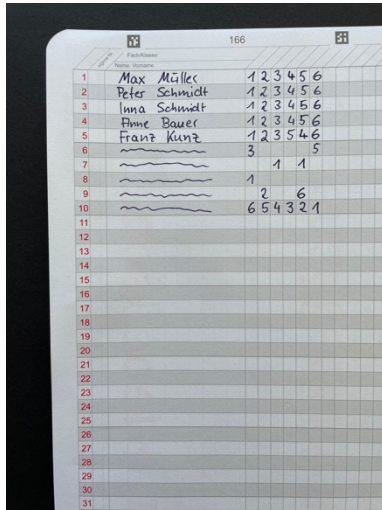 166
Fach/Klasse
Name, Vorname
1 Max Müller 1 2 3 4 5 6
2 Peter Schmidt 1 2 3 4 5 6
3 Inna Schmidt 1 2 3 4 5 6
4 Anne Bauer 1 2 3 4 5 6
5 Franz Kunz 1 2 3 5 4 6
6 3 5
7 1 1
8 1
9 2 6
10 6 5 4 3 2 1
11
12
13
14
15
16
17
18
19
20
21
22
23
24
25
26
27
28
29
30
31